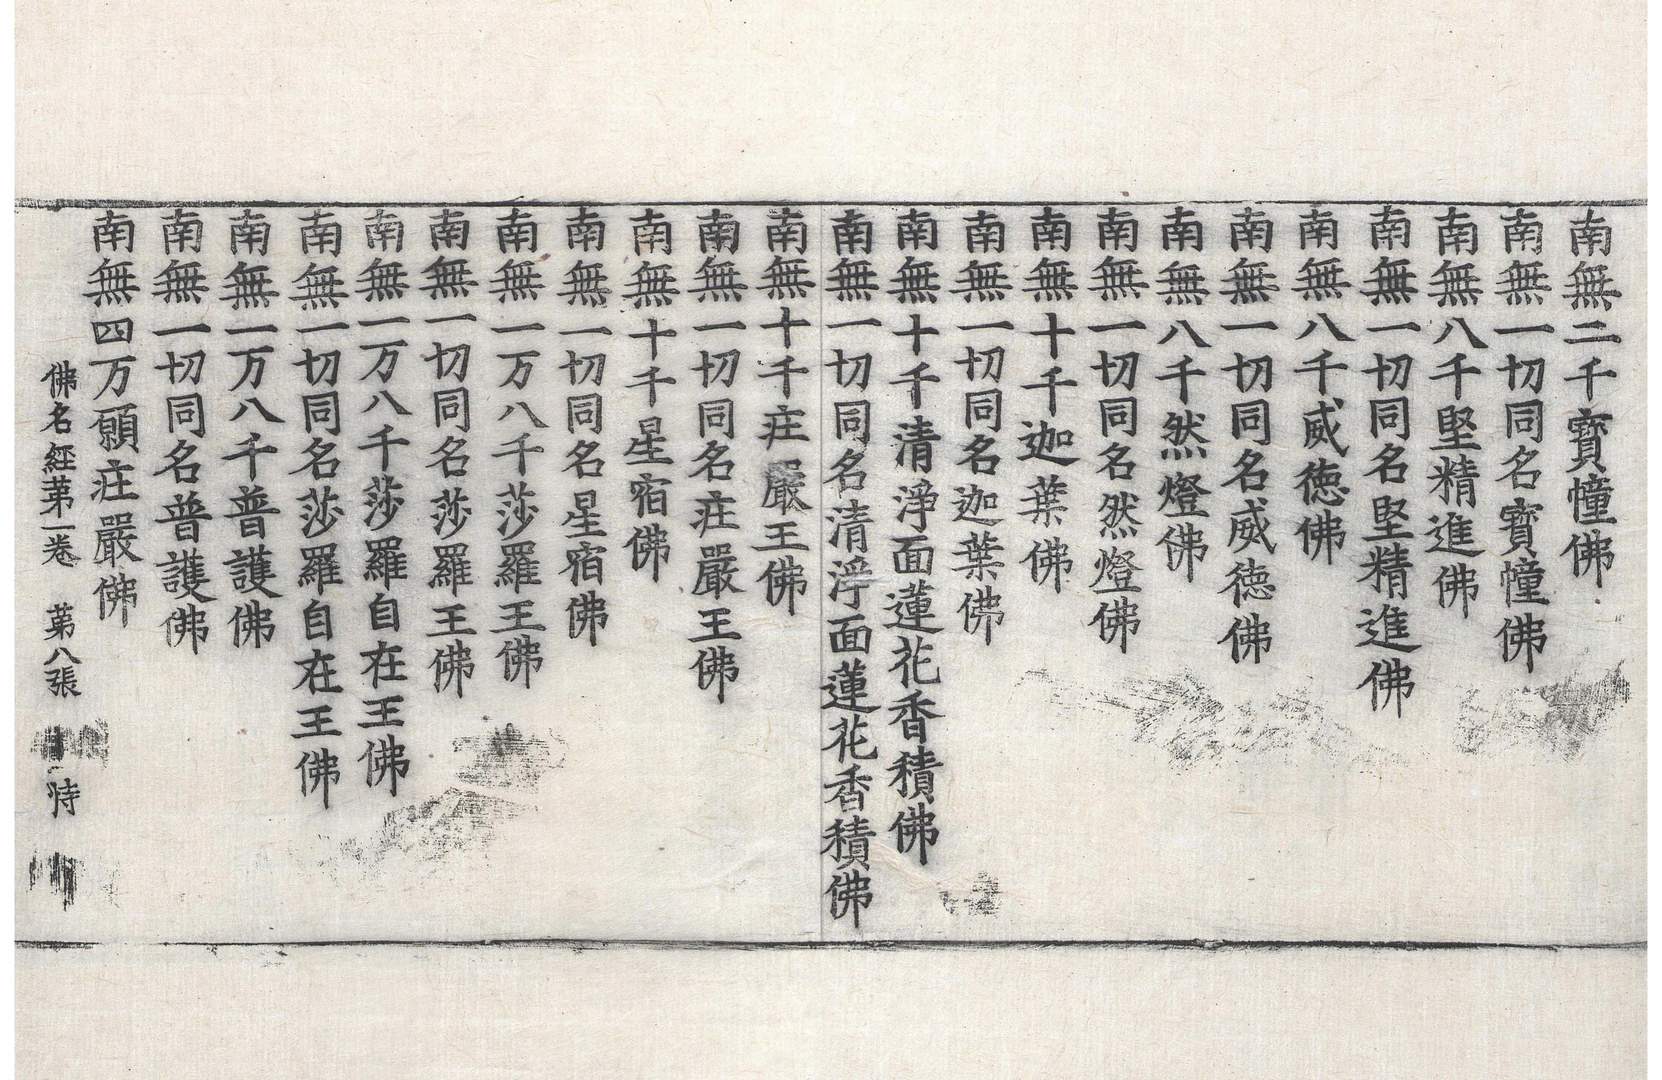 南無二千寶幢佛
南無一切同名寶幢佛
南無八千堅精進佛
南無一切同名堅精進佛
南無八千威徳佛
南無一切同名威徳佛
南無八千然燈佛
南無一切同名然燈佛
南無十千迦葉佛
南無一切同名迦葉佛
南無十千清淨面蓮花香積佛
南無一切同名清淨面蓮花香積佛
南無十千莊嚴王佛
南無一切同名莊嚴王佛
南無十千星宿佛
南無一切同名星宿佛
南無一万八千莎羅王佛
南無一切同名莎羅王佛
南無一万八千莎羅自在王佛
南無一切同名莎羅自在王佛
南無一万八千普護佛
南無一切同名普護佛
南無四万願莊嚴佛
佛名經苐一卷 苐八張 特